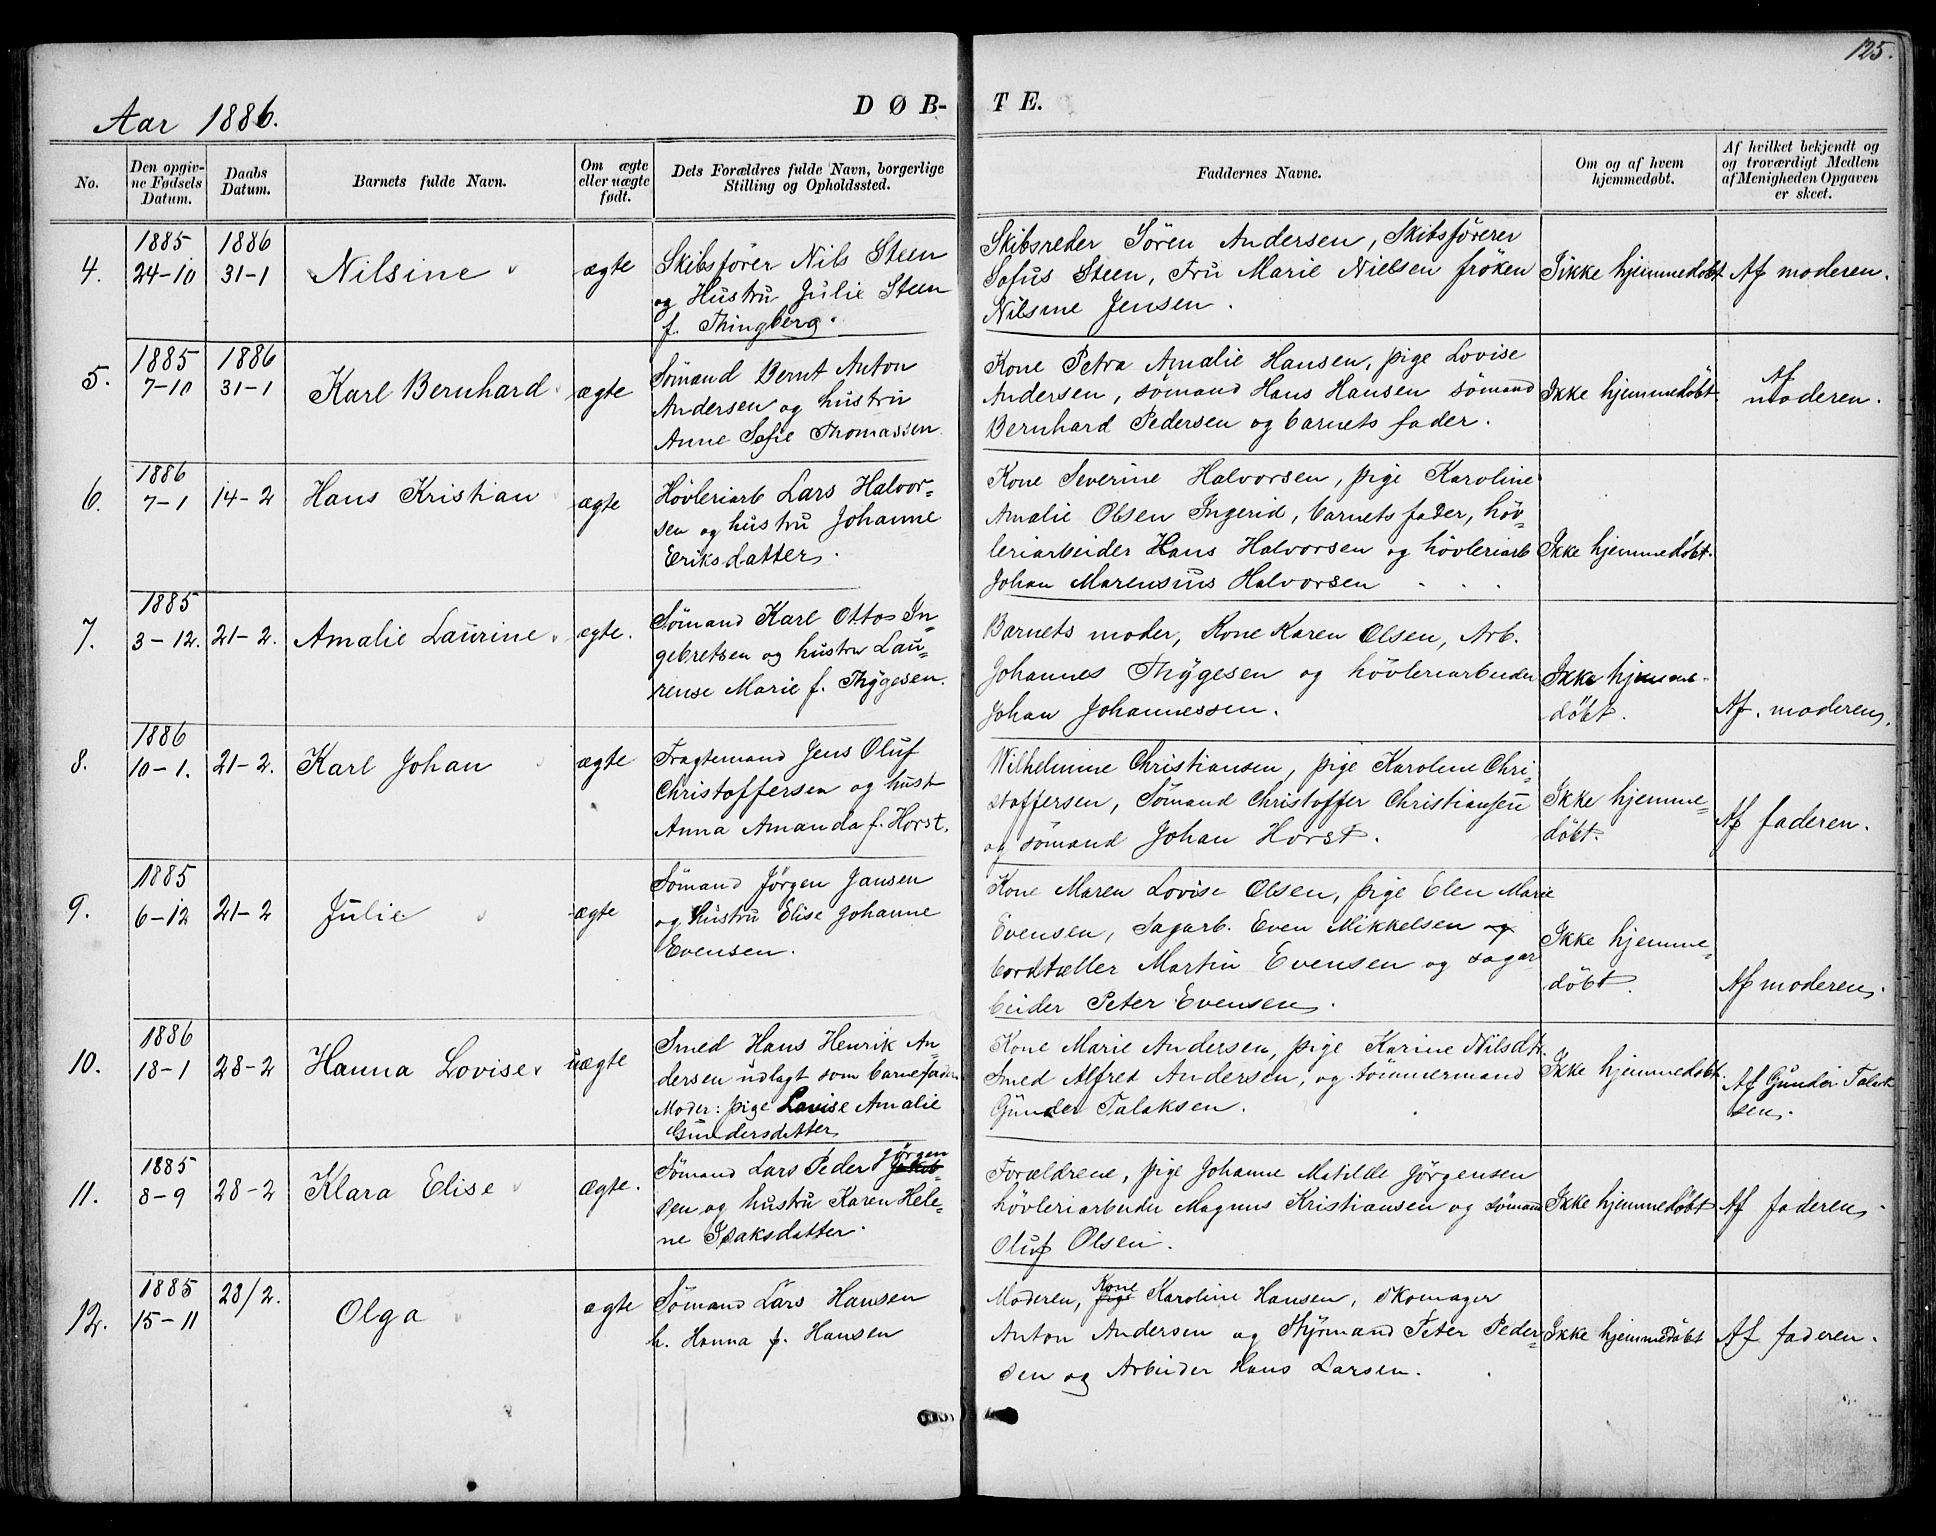 125.
Aar 1886.
DØB-
TE.
No.
Den opgiv-
ne Fødsels
Datum.
Daabs
Datum.
Barnets fulde Navn.
Om ægte
eller uægte
født.
Dets Forældres fulde Navn, borgerlige
Stilling og Opholdssted.
Faddernes Navne.
Om og af hvem
hjemmedøbt.
Af hvilket bekjendt og
og troværdigt Medlem
af Menigheden Opgaven
er skeet.
4.
1885
24-10
1886
31-1
Nilsine
ægte
Skibsfører Nils Steen
og Hustru Julie Steen
f. Thingberg.
Skibsreder Sören Andersen, Skibsförerer
Sofus Steen, Fru Marie Nielsen fröken
Nilsine Jensen.
Ikke hjemmedøbt
Af moderen.
5.
1885
7-10
1886
31-1
Karl Bernhard
ægte
Sömand Bernt Anton
Andersen og hustru
Anne Sofie Thomassen
Kone Petra Amalie Hansen, pige Lovise
Andersen, sömand Hans Hansen sömand
Bernhard Pedersen og barnets fader.
Ikke hjemmedøbt
Af
moderen.
6.
1886
7-1
14-2
Hans Kristian
ægte
Hövleriarb Lars Halvor-
sen og hustru Johanne
Eriksdatter.
Kone Severine Halvorsen, pige Karoline
Amalie Olsen Ingerid, barnets fader, höv-
leriarbeider Hans Halvorsen og hövleriarb
Johan Marensius Halvorsen
Ikke hjemmedøbt.
7.
1885
3-12.
21-2.
Amalie Laurine
ægte.
Sömand Karl Ottos In-
gebretsen og hustru Lau-
rense Marie f. Thygesen.
Barnets moder, Kone Karen Olsen, Arb.
Johannes Thygesen og hövleriarbeider
Johan Johannessen.
Ikke hjemme-
døbt.
Af. moderen.
8.
1886
10-1.
21-2.
Karl Johan
ægte
Fragtemand Jens Oluf
Christoffersen og hust
Anna Amanda f. Horst.
Wilhelmine Christiansen, pige Karoline Chri-
stoffersen, Sömand Christoffer Christiansen
og sömand Johan Horst.
Ikke hjemme-
døbt.
Af faderen.
9.
1885
6-12
21-2
Julie
ægte
Sömand Jörgen Jansen
og hustru Elise Johanne
Evensen.
Kone Maren Lovise Olsen, pige Elen Marie
Evensen, Sagarb. Even Mikkelsen og
bordtæller Martin Evensen og sagar
beider Peter Evensen.
Ikke hjemme-
døbt.
Af moderen.
10.
1886
18-1
28-2
Hanna Lovise
uægte
Smed Hans Henrik An-
dersen udlagt som barnefader
Moder: pige Lovise Amalie
Gundersdatter
Kone Marie Andersen, pige Karine Nilsdt.
Smed Alfred Andersen, og tömmermand
Gunder Talaksen.
Ikke hjemmedøbt.
Af Gunder Talak
sen.
11.
1885
8-9
28-2
Klara Elise
ægte.
Jörgen
Sömand Lars Peder Jakob-
sen og hustru Karen Hele-
ne Isaksdatter.
Forældrene, pige Johanne Matilde Jörgensen
hövleriarbeider Magnus Kristiansen og sömand
Oluf Olsen.
Ikke hjemmedøbt
Af faderen.
12.
1885
15-11
28/2.
Olga
ægte
Sömand Lars Hansen
h. Hanna f. Hansen
Kone
Moderen, pige Karoline Hansen, skomager
Anton Andersen og Styrmand Peter Peder-
sen og Arbeider Hans Larsen.
Ikke hjemmedøbt
Af faderen.